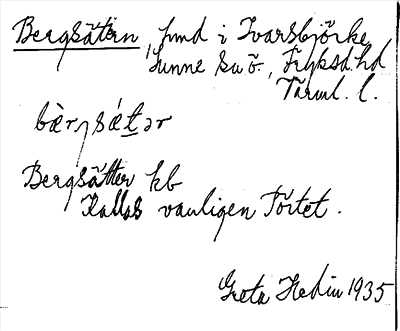 Bergsätern, hmd i Ivarsbjörke,
Sunne sn ö., Fryksd. hd
Värml. l.
bæ̀rgsǽtər
Bergsätter kb
Kallas vanligen Törtet.
Greta Hedin 1935